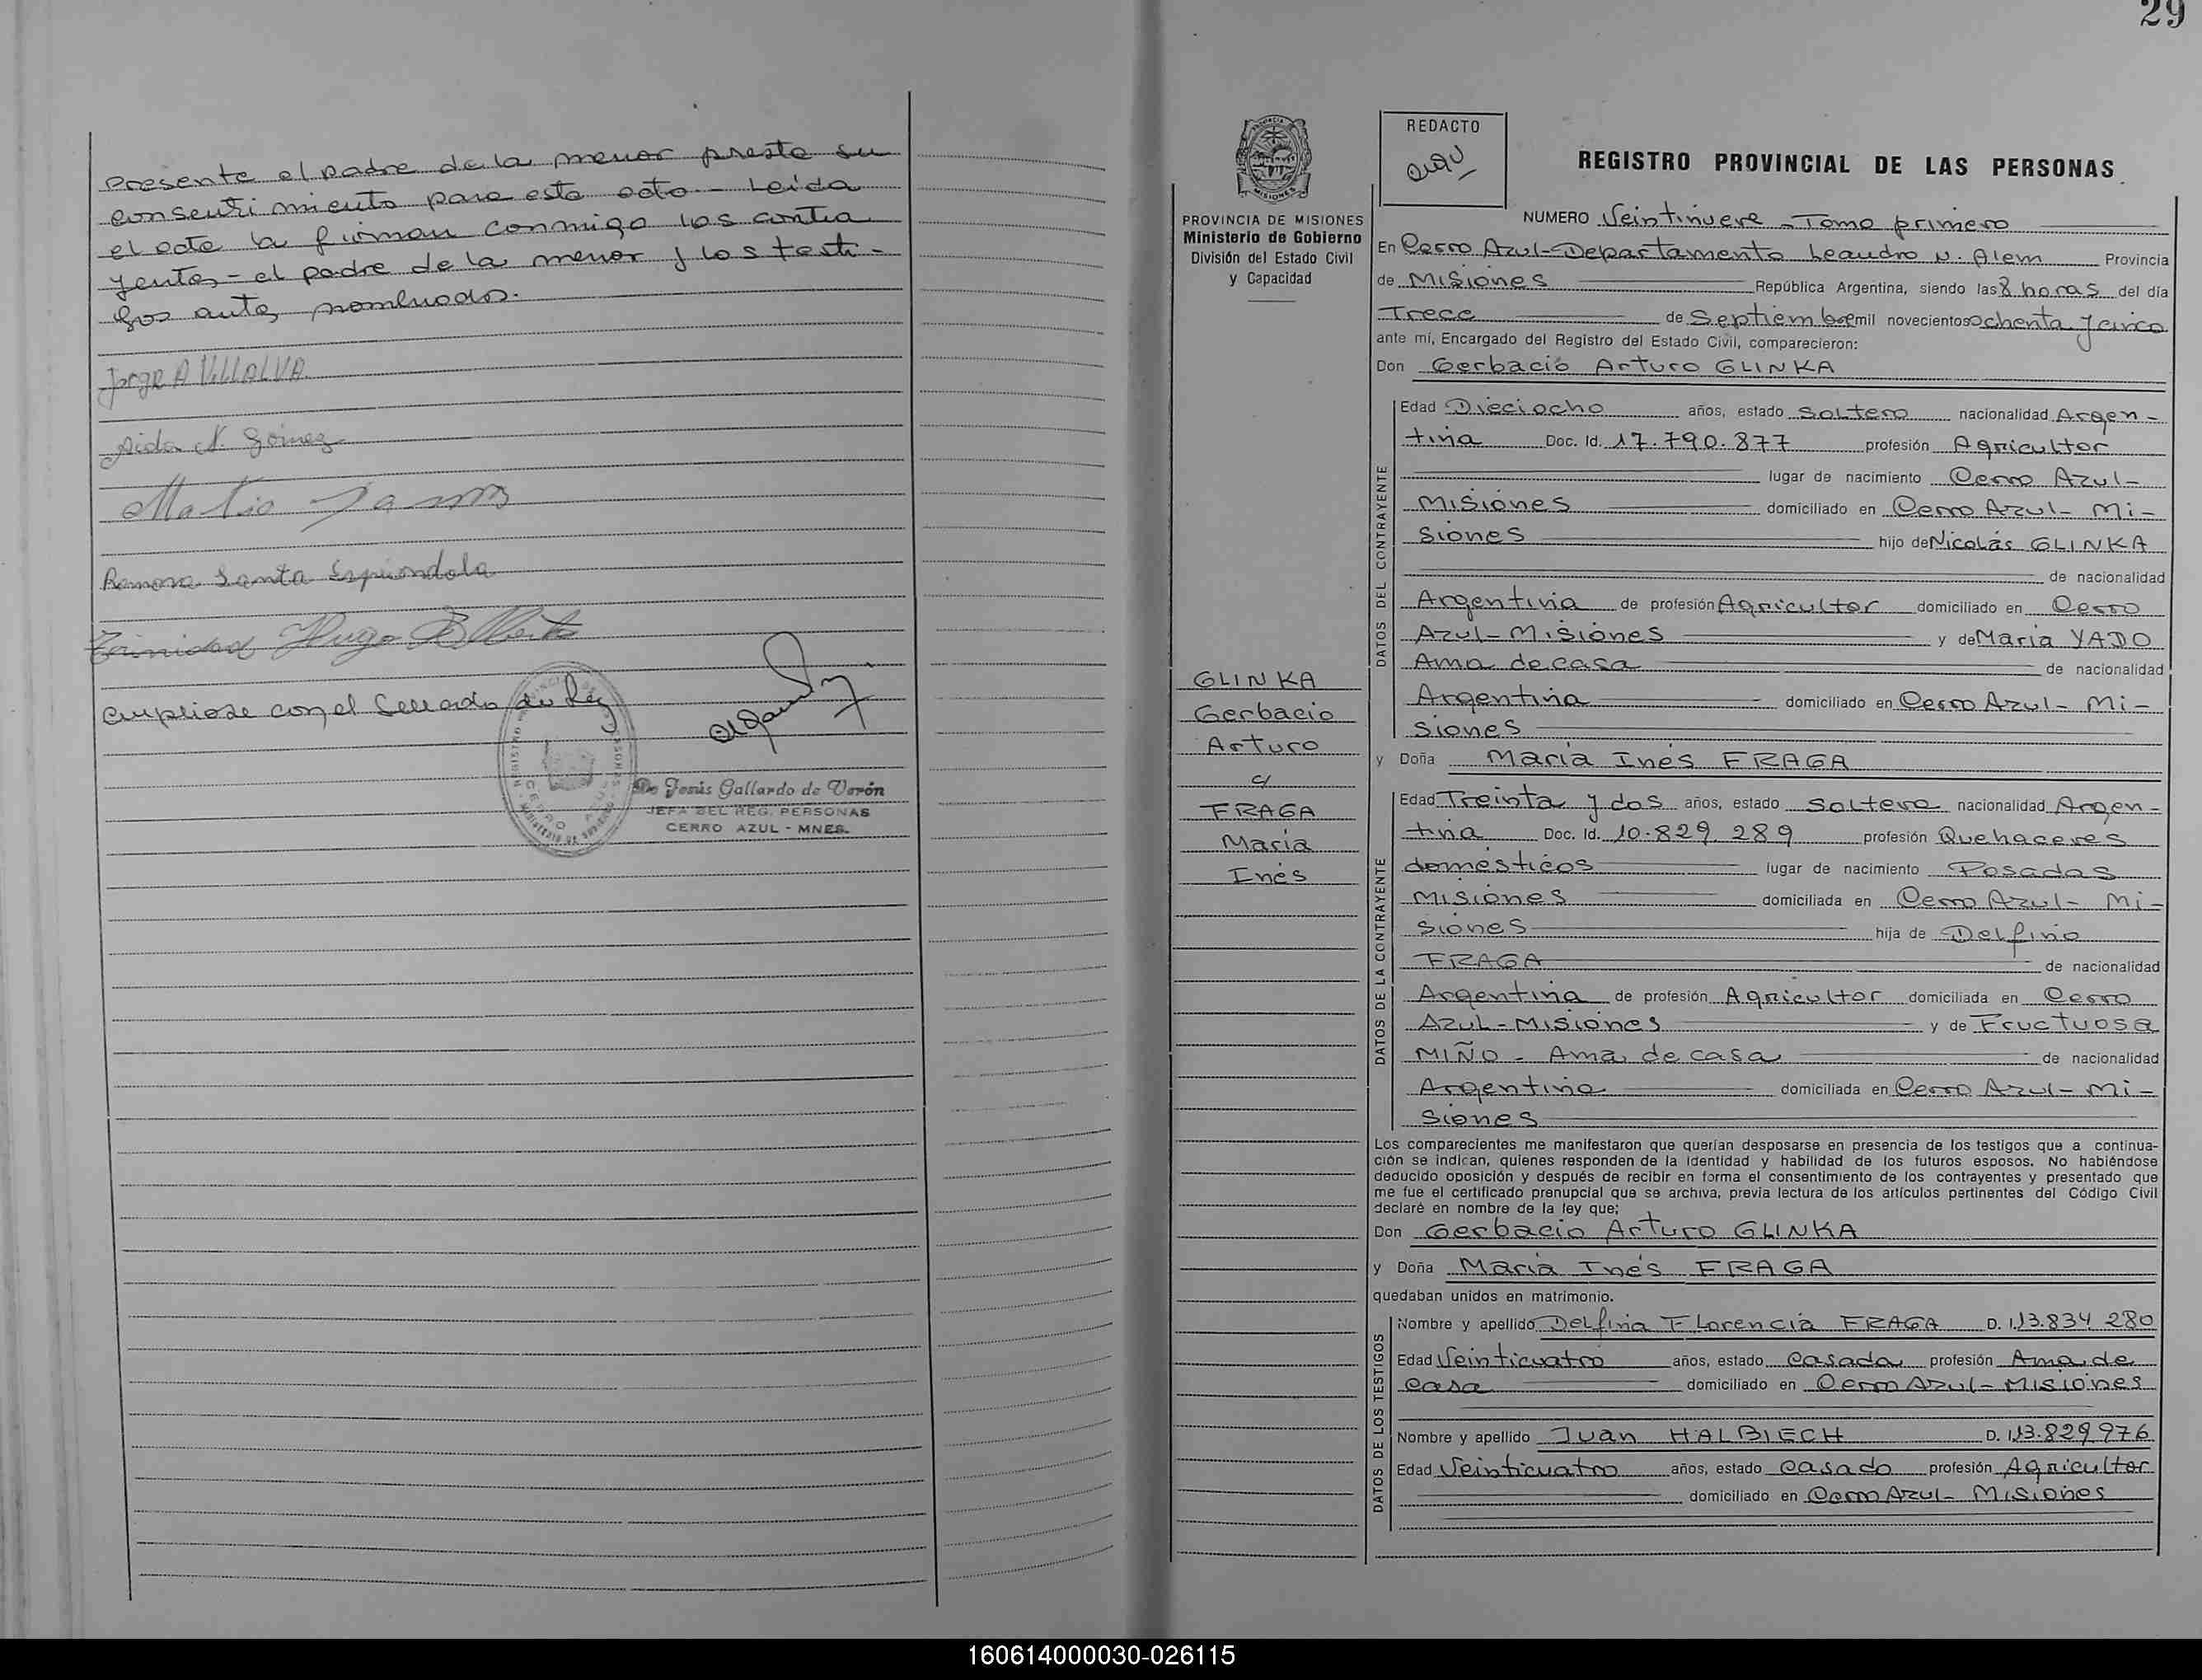 presente el padre de la menor presta su
consentimiento para este acto - Leida
el acta la firman conmigo los contra
yentes - el padre de la menor y los testi -
gos antes nombrados.
Jorge A VILLALVA
Aida N. Gómez
Ramona Santa Espindola
Trinidad Hugo Alberto
Cumpliose con el Sellado de Ley
Jesús Gallardo de Verón
JEFA DEL REG. PERSONAS
CERRO AZUL - MNES.
29
PROVINCIA DE MISIONES
Ministerio de Gobierno
División del Estado Civil
y Capacidad
GLINKA
Gerbacio
Arturo
c/
FRAGA
María
Inés
REDACTO
REGISTRO PROVINCIAL DE LAS PERSONAS
NUMERO Veintinueve - Tomo primero
En Cerro Azul - Departamento Leandro N. Alem Provincia
de Misiones República Argentina, siendo las 8 horas del día
Trece de Septiembre mil novecientos ochenta y cinco
ante mí, Encargado del Registro del Estado Civil, comparecieron:
Don Gerbacio Arturo GLINKA
DATOS DEL CONTRAYENTE
Edad Dieciocho años, estado soltero nacionalidad Argen -
tina Doc. Id. 17.790.877 profesión Agricultor
lugar de nacimiento Cerro Azul -
Misiones domiciliado en Cerro Azul - Mi -
siones hijo de Nicolás GLINKA
de nacionalidad
Argentina de profesión Agricultor domiciliado en Cerro
Azul - Misiones y de María YADO
Ama de casa de nacionalidad
Argentina domiciliado en Cerro Azul - Mi -
siones
y Doña María Inés FRAGA
DATOS DE LA CONTRAYENTE
Edad Treinta y dos años, estado soltera nacionalidad Argen -
tina Doc. Id. 10.829.289 profesión Quehaceres
domésticos lugar de nacimiento Posadas
Misiones domiciliada en Cerro Azul - Mi -
siones hija de Delfino
FRAGA de nacionalidad
Argentina de profesión Agricultor domiciliada en Cerro
Azul - Misiones y de Fructuosa
MIÑO - Ama de casa de nacionalidad
Argentina domiciliada en Cerro Azul - Mi -
siones
Los comparecientes me manifestaron que querían desposarse en presencia de los testigos que a continua-
ción se indican, quienes responden de la identidad y habilidad de los futuros esposos. No habiéndose
deducido oposición y después de recibir en forma el consentimiento de los contrayentes y presentado que
me fue el certificado prenupcial que se archiva, previa lectura de los artículos pertinentes del Código Civil
declaré en nombre de la ley que;
Don Gerbacio Arturo GLINKA
y Doña María Inés FRAGA
quedaban unidos en matrimonio.
DATOS DE LOS TESTIGOS
Nombre y apellido Delfina Florencia FRAGA D. I. 13.834 280
Edad Veinticuatro años, estado casada profesión Ama de
casa domiciliado en Cerro Azul - Misiones
Nombre y apellido Juan HALBIECH D. I. 13.829.976
Edad Veinticuatro años, estado casado profesión Agricultor
domiciliado en Cerro Azul - Misiones
160614000030-026115